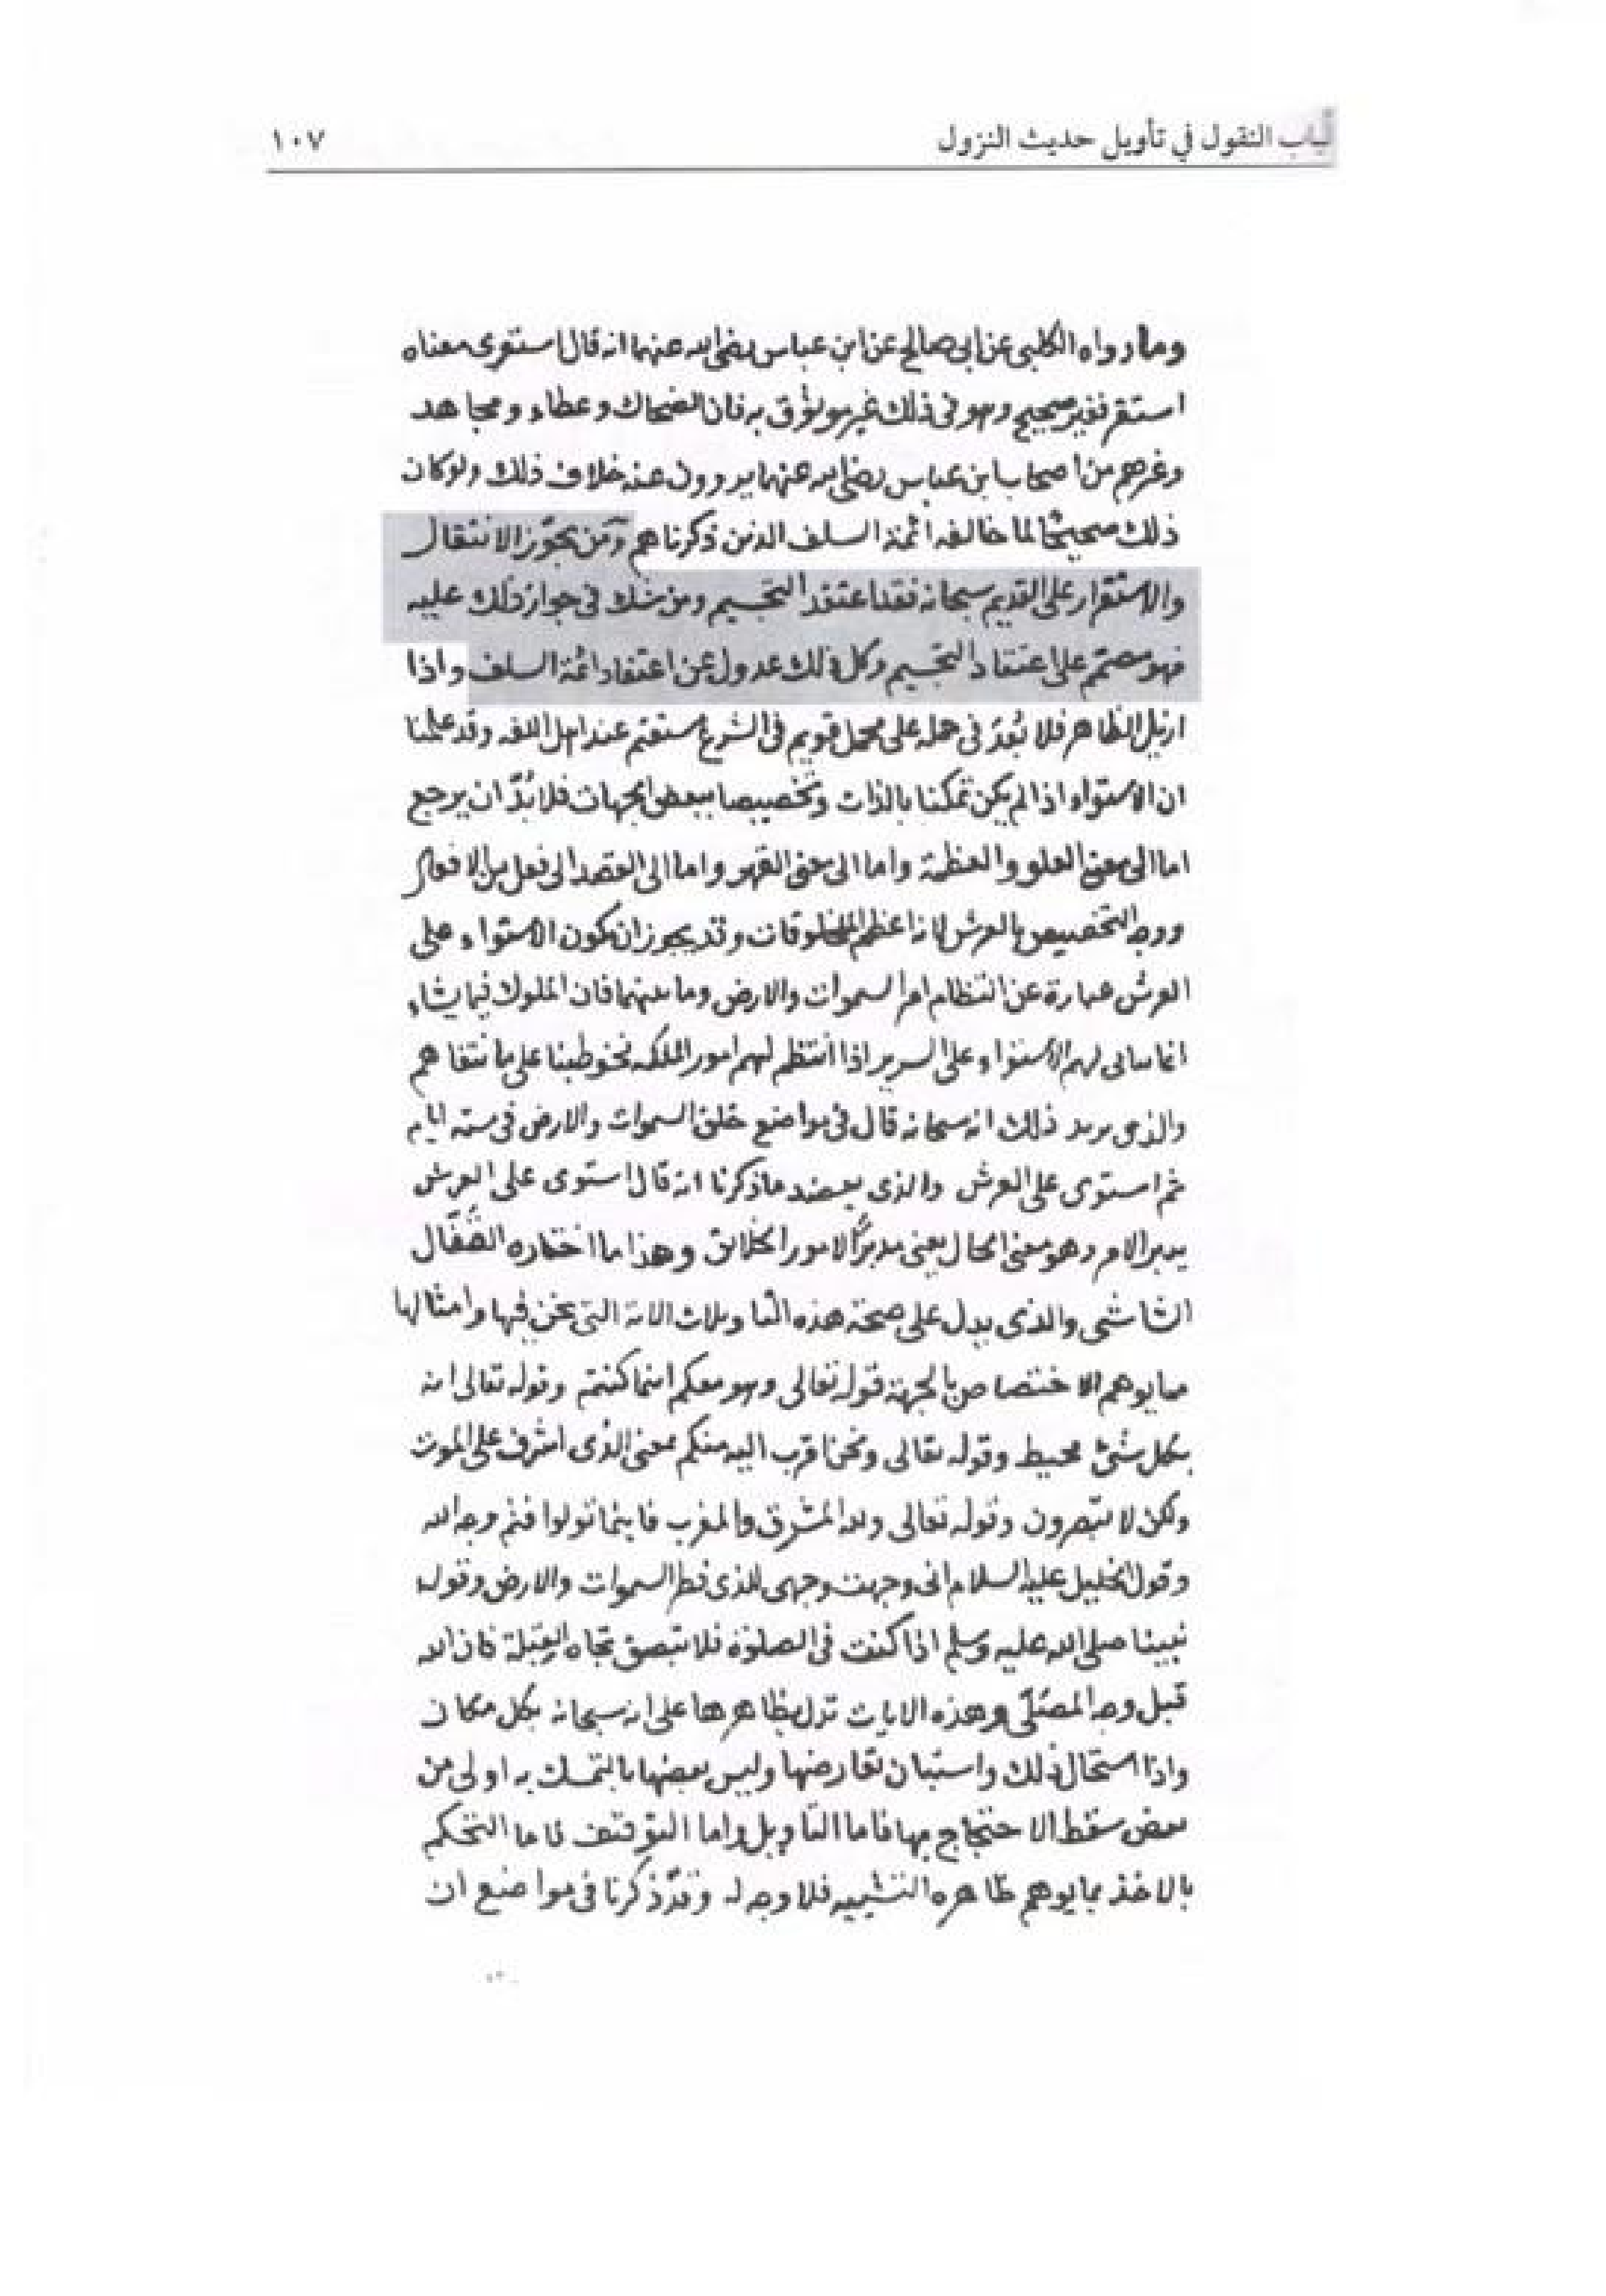 لباب النقول في تأويل حديث النزول
١٠٧
وما رواه الكلبي عن ابي صالح عن ابن عباس رضى الله عنهما انه قال استوى معناه
استقر فغير صحيح وهو فى ذلك غير موثوق به فان الضحاك وعطاء ومجاهد
وغيرهم من اصحاب ابن عباس رضى الله عنهما يروون عنه خلاف ذلك ولو كان
ذلك صحيحًا لما خالفه ائمة السلف الذين ذكرناهم ومن يجوّز الانتقال
والاستقرار على القديم سبحانه فقد اعتقد التجسيم ومن شك فى جواز ذلك عليه
فهو مصمّم على اعتقاد التجسيم وكل ذلك عدول عن اعتقاد ائمة السلف واذا
ازيل الظاهر فلا بُعْدَ فى حمله على محمل قويم فى الشرع مستقيم عند اهل اللغه وقد علمنا
ان الاستواء اذا لم يكن تمكنا بالذات وتخصيصا ببعض الجهات فلا بُدّ ان يرجع
اما الى معنى العلو والعظمة واما الى معنى القهر واما الى القصد الى فعل من الافعال
ووجه التخصيص بالعرش لانه اعظم المخلوقات وقد يجوز ان يكون الاستواء على
العرش عبارة عن انتظام امر السموات والارض وما بينهما فان الملوك فيما يشاء
انما يتاتى لهم الاستواء على السرير اذا انتظم لهم امور الملكه فخوطبنا على ما نتفاهم
والذى يريد ذلك انه سبحانه قال فى مواضع خلق السموات والارض فى ستة ايام
ثم استوى على العرش والذى يعضد ما ذكرنا انه قال استوى على العرش
يدبر الامر وهو معنى الحال يعنى مدبرًا لامور الخلائق وهذا ما اختاره القفّال
الشاشى والذى يدل على صحة هذه التاويلات الاية التى نحن فيها وامثالها
مما يوهم الاختصاص بالجهة قوله تعالى وهو معكم اينما كنتم وقوله تعالى انه
بكل شئ محيط وقوله تعالى ونحن اقرب اليه منكم معنى الذى اشرف على الموت
ولكن لا تبصرون وقوله تعالى ولله المشرق والمغرب فاينما تولوا فثم وجه الله
وقول الخليل عليه السلام انى وجهت وجهى للذى فطر السموات والارض وقول
نبينا صلى الله عليه وسلم اذا كنت فى الصلوة فلا تبصق تجاه القبلة فان الله
قبل وجه المصلّى وهذه الايات تدل بظاهرها على انه سبحانه بكل مكان
واذا استحال ذلك واستبان تعارضها وليس بعضها بالتمسك به اولى من
بعض سقط الاحتجاج بها فاما التاويل واما التوقف فاما التحكم
بالاخذ بما يوهم ظاهره التشبيه فلا وجه له وقد ذكرنا فى مواضع ان